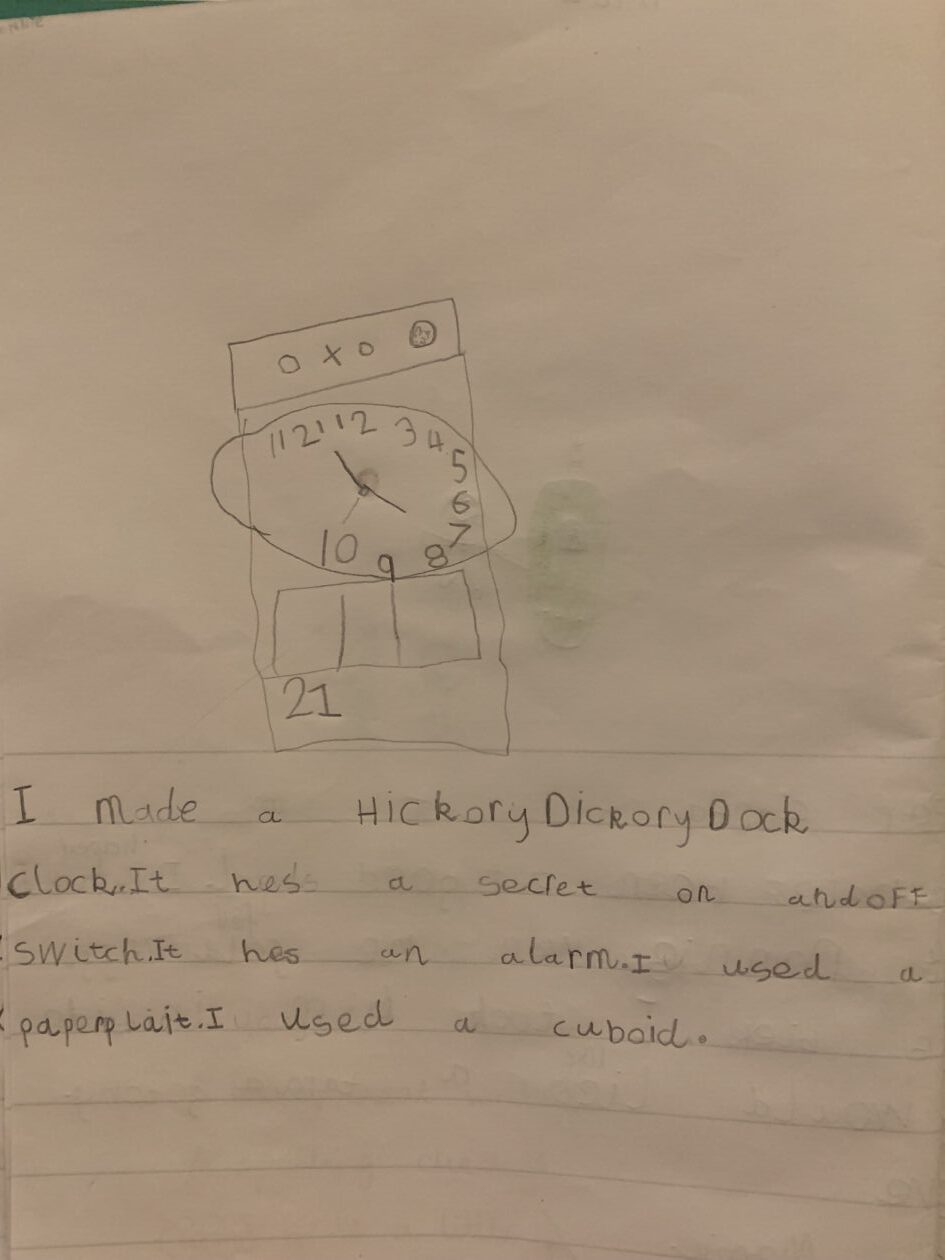 o x o
11 12 1 1 2 3 4
5
6
7
10 9 8
21
I made a Hickory Dickory Dock
clock. It hes a secret on and off
switch. It hes an alarm. I used a
paperplait. I used a cuboid.